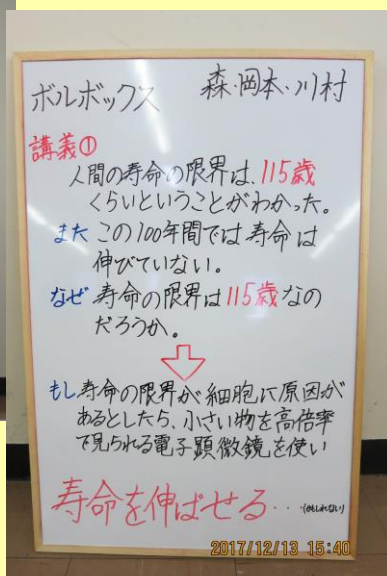 ボルボックス 森・岡本・川村
講義①
人間の寿命の限界は、115歳
くらいということがわかった。
また この100年間では寿命は
伸びていない。
なぜ 寿命の限界は115歳なの
だろうか。
もし寿命の限界が細胞に原因が
あるとしたら、小さい物を高倍率
で見られる電子顕微鏡を使い
寿命を伸ばせる・・・(かもしれない)
2017/12/13 15:40